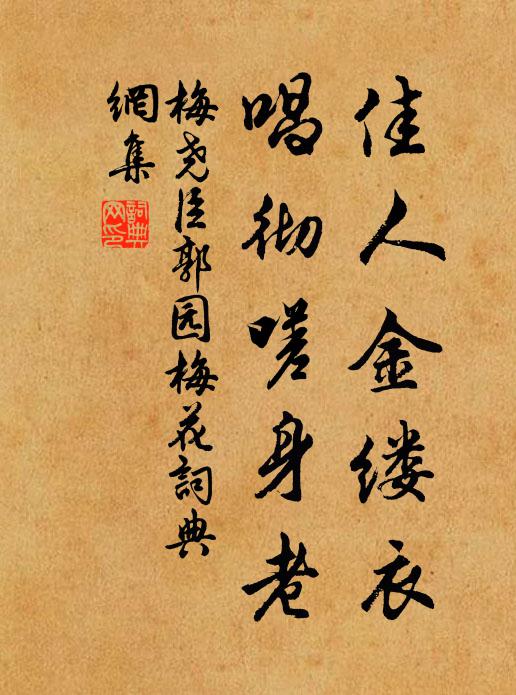 佳人金缕衣
唱彻嗟身老
梅尧臣郭园梅花詞典
網集
詞典
网印